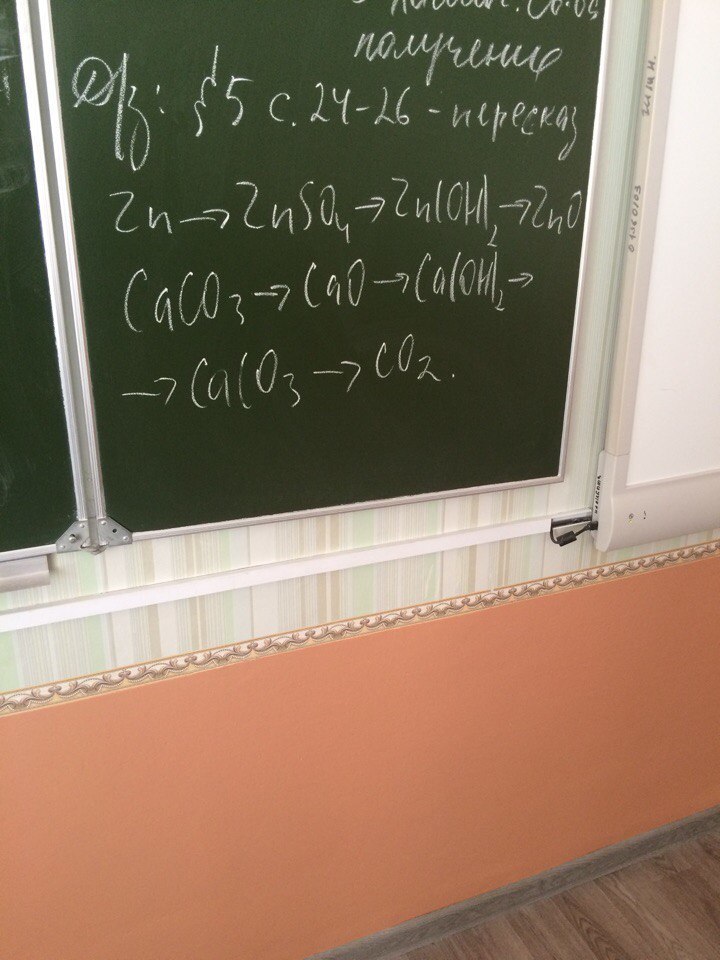 получение
Д/з: § 5 с. 24-26 - пересказ
Zn → ZnSO₄ → Zn(OH)₂ → ZnO
CaCO₃ → CaO → Ca(OH)₂ →
→ CaCO₃ → CO₂.